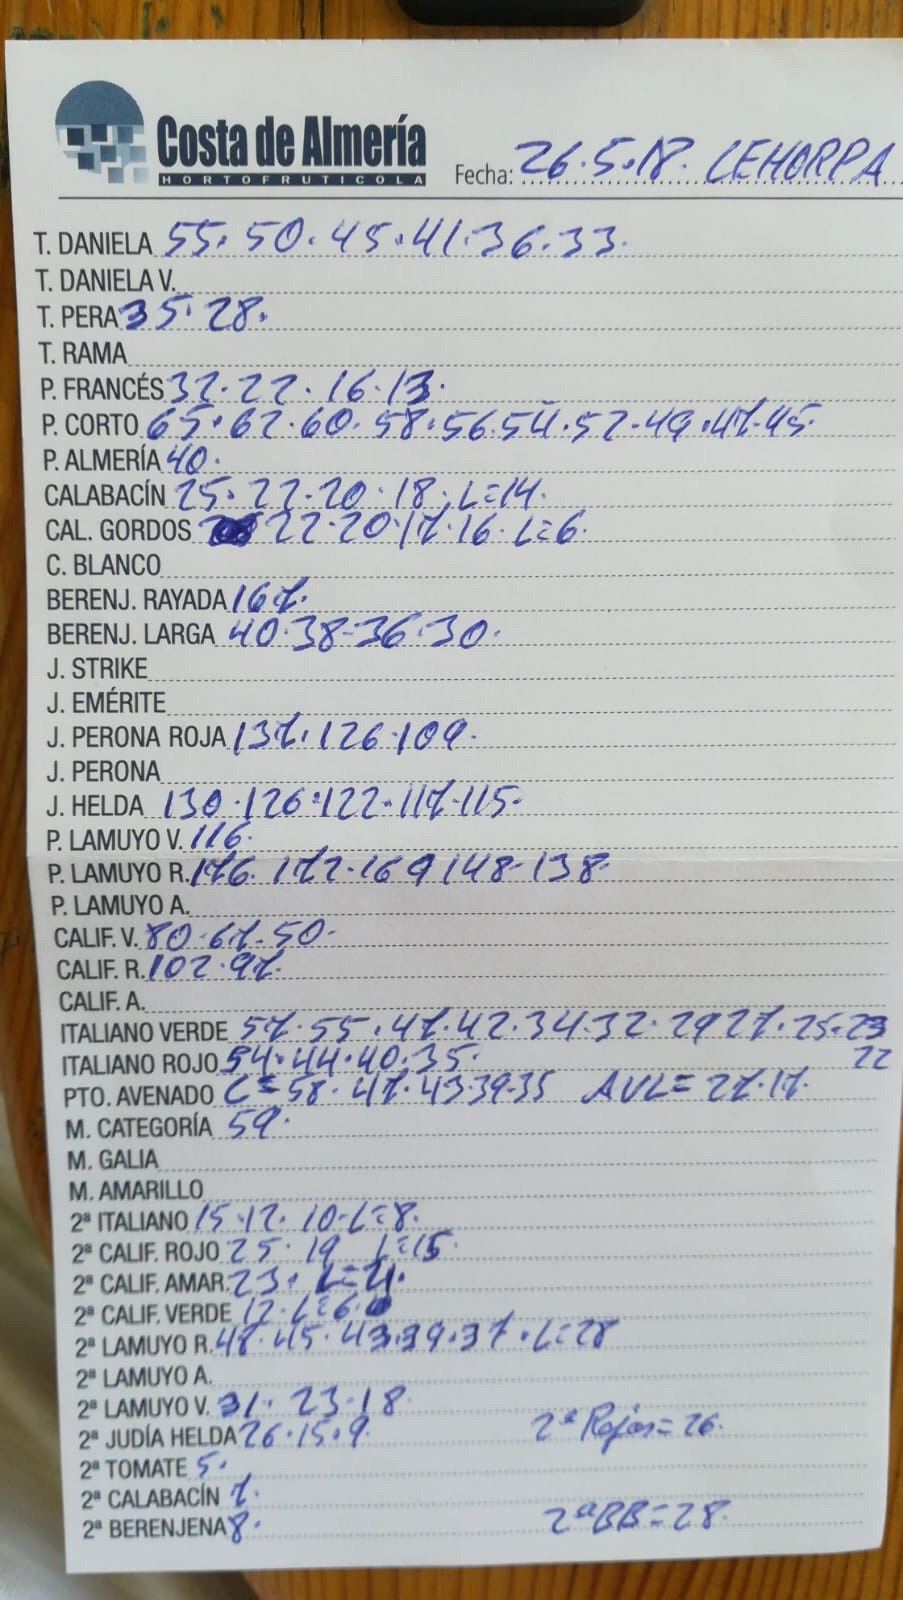 Costa de Almería
HORTOFRUTICOLA
Fecha: 26.5.18. LEHORPA
T. DANIELA 55. 50. 45. 41. 36. 33.
T. DANIELA V.
T. PERA 35. 28.
T. RAMA
P. FRANCÉS 32. 22. 16. 13.
P. CORTO 65. 62. 60. 58. 56. 54. 52. 49. 47. 45.
P. ALMERÍA 40.
CALABACÍN 25. 22. 20. 18. L=14.
CAL. GORDOS 22. 20. 17. 16. L=6.
C. BLANCO
BERENJ. RAYADA 167.
BERENJ. LARGA 40. 38-36. 30.
J. STRIKE
J. EMÉRITE
J. PERONA ROJA 137. 126. 109.
J. PERONA
J. HELDA 130. 126. 122. 117. 115.
P. LAMUYO V. 116.
P. LAMUYO R. 176. 172. 169 148- 138.
P. LAMUYO A.
CALIF. V. 80. 67. 50.
CALIF. R. 102. 97.
CALIF. A.
ITALIANO VERDE 57. 55. 47. 42. 34. 32. 29 27. 25. 23
22
ITALIANO ROJO 54. 44. 40. 35.
PTO. AVENADO C=58. 47. 43 39. 35 AVL=27. 17.
M. CATEGORÍA 59.
M. GALIA
M. AMARILLO
2ª ITALIANO 15. 12. 10. L=8.
2ª CALIF. ROJO 25. 19 L=15.
2ª CALIF. AMAR. 23. L=21.
2ª CALIF. VERDE 12. L=6.
2ª LAMUYO R. 48. 45. 43. 39. 37. L=28
2ª LAMUYO A.
2ª LAMUYO V. 31. 23. 18
2ª JUDÍA HELDA 26. 15. 9. 2ª Rojas=26.
2ª TOMATE 5.
2ª CALABACÍN 7.
2ª BERENJENA 8. 2ª BB=28.